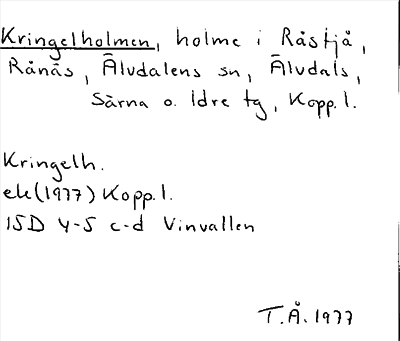 Kringelholmen, holme i Råstjå,
Rånäs, Älvdalens sn, Älvdals,
Särna o. Idre tg, Kopp. l.
Kringelh.
ek(1977) Kopp. l.
15D 4-5 c-d Vinvallen
T.Å. 1977